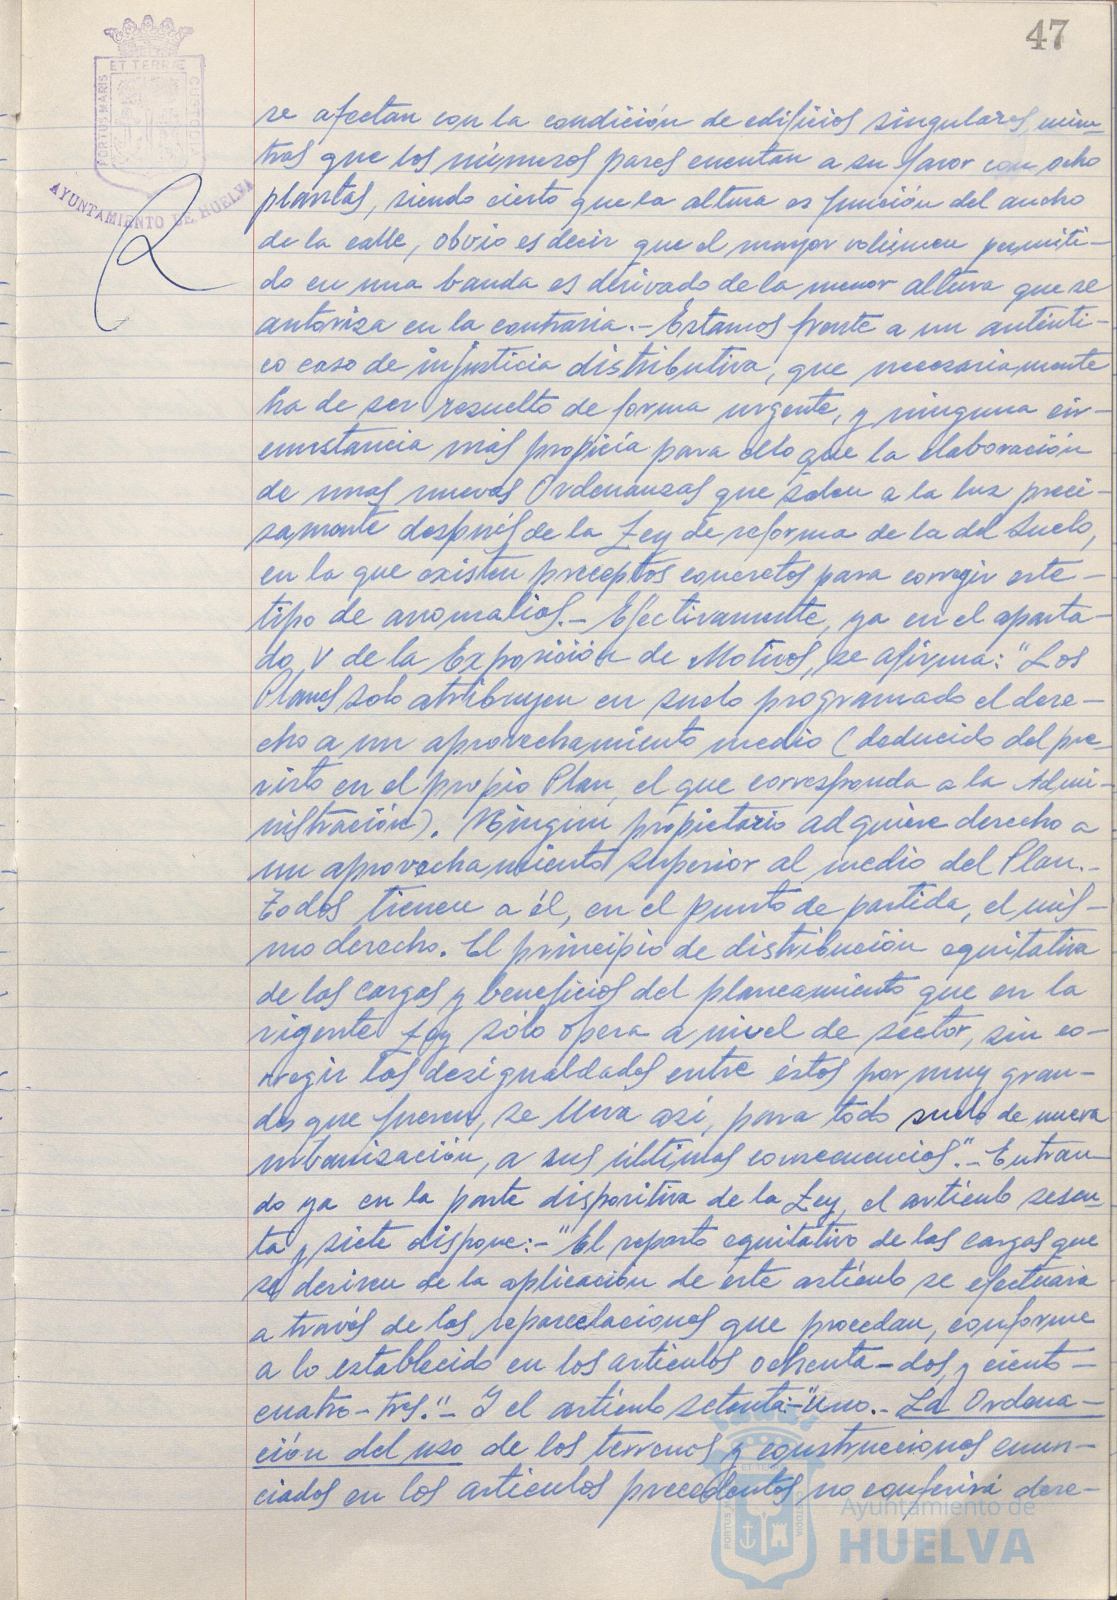 47
ET TERRÆ
PORTUS MARIS
CUSTODIA
AYUNTAMIENTO DE HUELVA
se afectan con la condición de edificios singulares, mien-
tras que los números pares cuentan a su favor con ocho
plantas, siendo cierto que la altura es función del ancho
de la calle, obvio es decir que el mayor volúmen permiti-
do en una banda es derivado de la menor altura que se
autoriza en la contraria.- Estamos frente a un auténti-
co caso de injusticia distributiva, que necesariamente
ha de ser resuelto de forma urgente, y ninguna cir-
cunstancia más propicia para ello que la elaboración
de unas nuevas Ordenanzas que salen a la luz preci-
samente después de la Ley de reforma de la del Suelo,
en la que existen preceptos concretos para corregir este-
tipo de anomalías.- Efectivamente, ya en el aparta-
do V de la Exposición de Motivos, se afirma: "Los
Planes solo atribuyen en suelo programado el dere-
cho a un aprovechamiento medio (deducido del pre-
visto en el propio Plan, el que corresponda a la Admi-
nistración). Ningún propietario adquiere derecho a
un aprovechamiento superior al medio del Plan.-
Todos tienen a él, en el punto de partida, el mis-
mo derecho. El principio de distribución equitativa
de las cargas y beneficios del planeamiento que en la
vigente Ley sólo opera a nivel de sector, sin co-
rregir las desigualdades entre éstos por muy gran-
des que fueren, se lleva así, para todo suelo de nueva
urbanización, a sus últimas consecuencias".- Entran-
do ya en la parte dispositiva de la Ley, el artículo sesen-
ta y siete dispone:- "El reparto equitativo de las cargas que
se deriven de la aplicación de este artículo se efectuará
a través de las reparcelaciones que procedan, conforme
a lo establecido en los artículos ochenta-dos, y ciento-
cuatro-tres."- Y el artículo setenta:-"Uno.- La Ordena-
ción del uso de los terrenos y construcciones enun-
ciados en los artículos precedentes no conferirá dere-
Ayuntamiento de
HUELVA